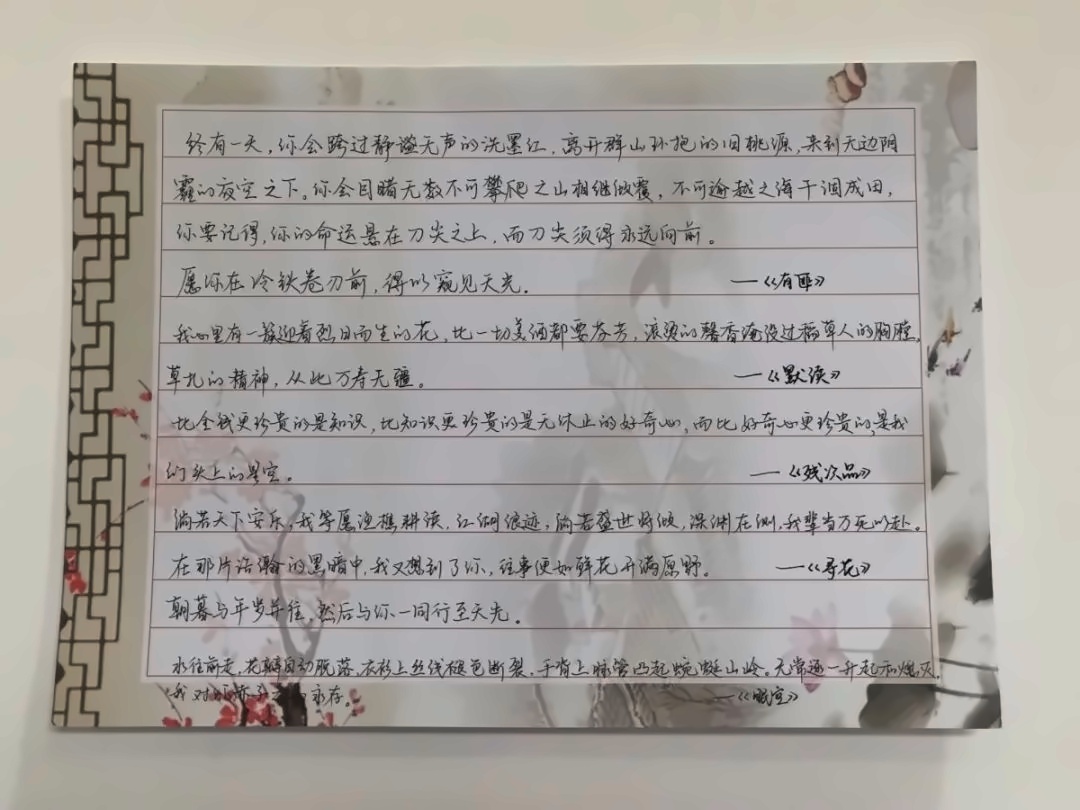 终有一天，你会跨过静谧无声的洗墨江，离开群山环抱的旧桃源，来到无边阴
霾的夜空之下。你会目睹无数不可攀爬之山相继倾覆，不可逾越之海干涸成田，
你要记得，你的命运悬在刀尖之上，而刀尖须得永远向前。
愿你在冷铁卷刃前，得以窥见天光。 —《有匪》
我心里有一簇迎着烈日而生的花，比一切美酒都要芬芳，滚烫的馨香淹没过稻草人的胸膛，
草扎的精神，从此万寿无疆。 —《默读》
比金钱更珍贵的是知识，比知识更珍贵的是无休止的好奇心，而比好奇心更珍贵的，是我
们头上的星空。 —《残次品》
倘若天下安乐，我等愿渔樵耕读，江湖浪迹，倘若盛世将倾，深渊在侧，我辈当万死以赴。
在那片浩瀚的黑暗中，我又想到了你，往事便如鲜花开满原野。 —《寻花》
朝暮与年岁并往，然后与你一同行至天光。
水往前走，花瓣自动脱落，衣衫上丝线褪色断裂，手背上脉管凸起蜿蜒山岭。无常逐一升起和熄灭，
我对 永存。 —《眠空》